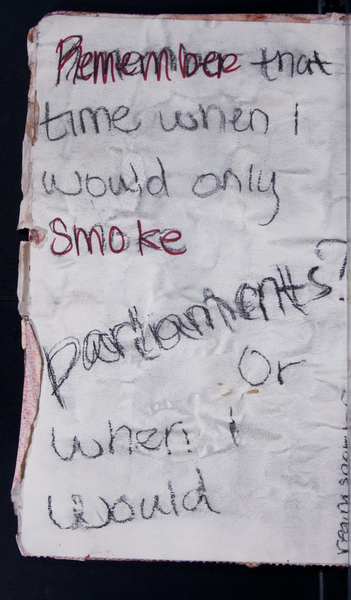 Remember that
time when I
would only
smoke
parliaments?
Or
when I
would